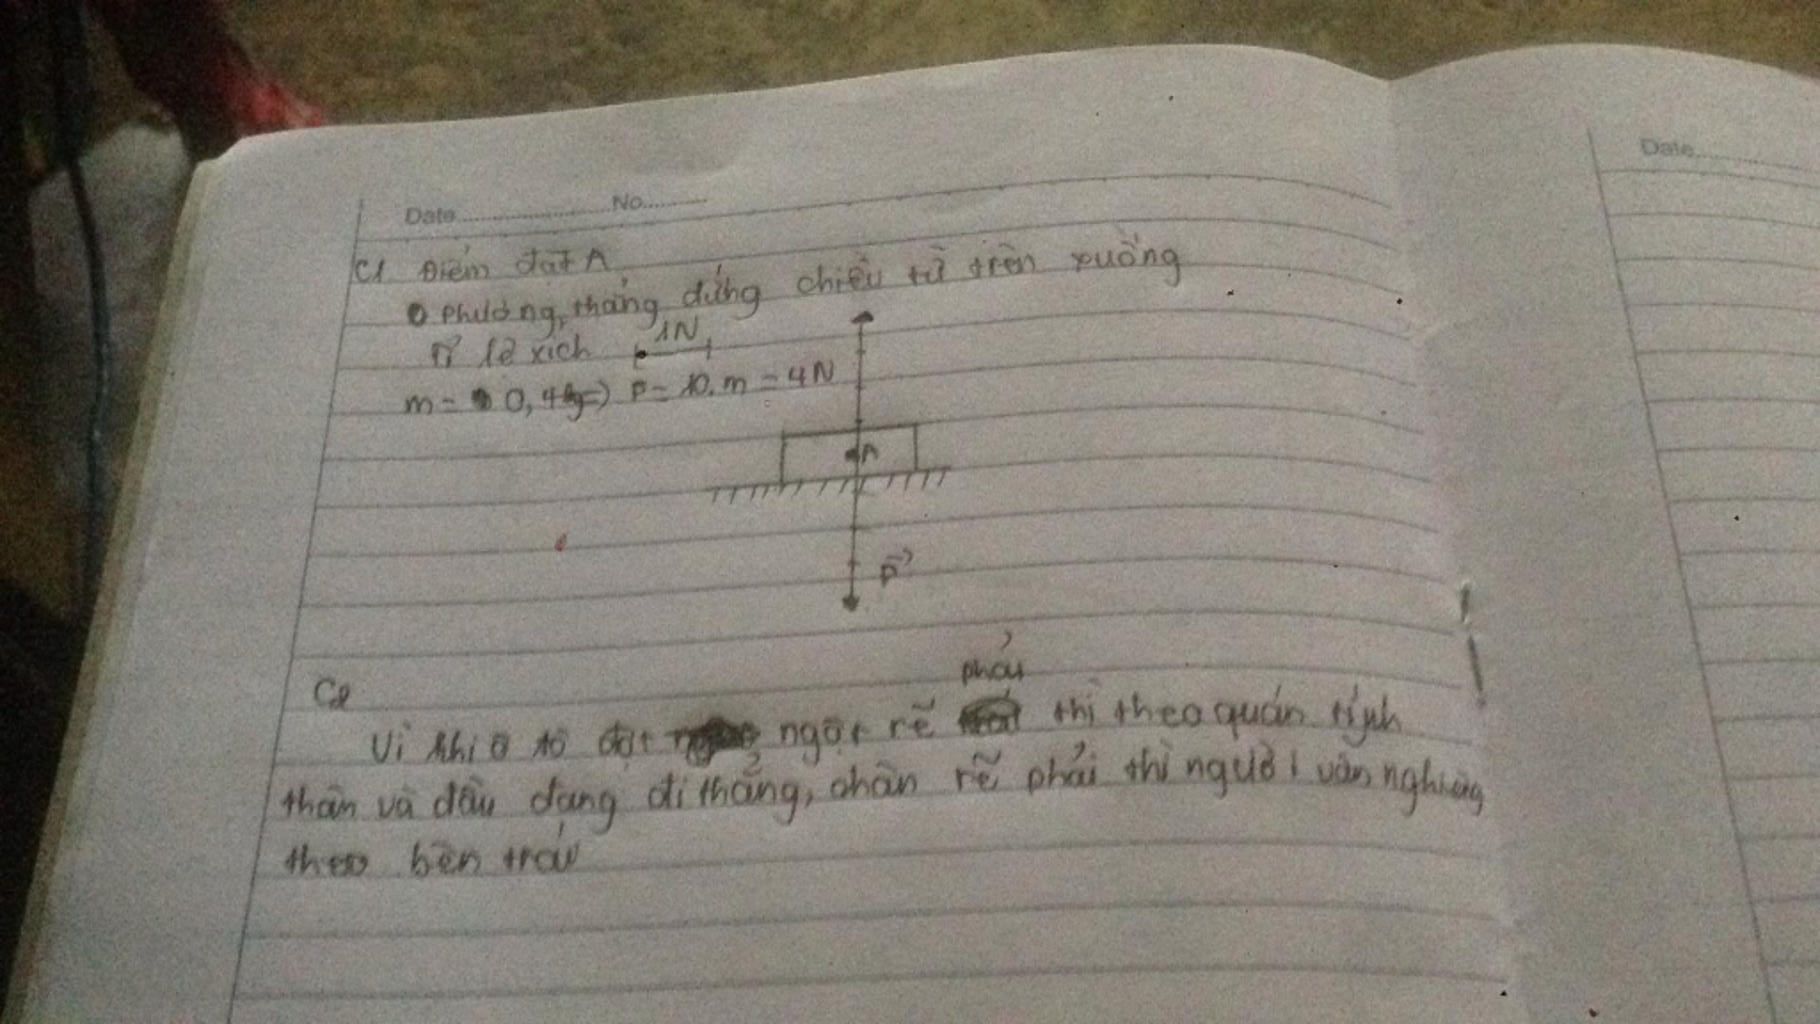 Date............No........
Date........
C1 Điểm đặt A
Phương, thẳng đứng chiều từ trên xuống
Tỉ lệ xích 1N
m = 0,4kg => P = 10.m = 4N
A
P
C2
phải
Vì khi ô tô đột ngột rẽ thì theo quán tính
thân và đầu đang đi thẳng, chân rẽ phải thì người vẫn nghiêng
theo bên trái